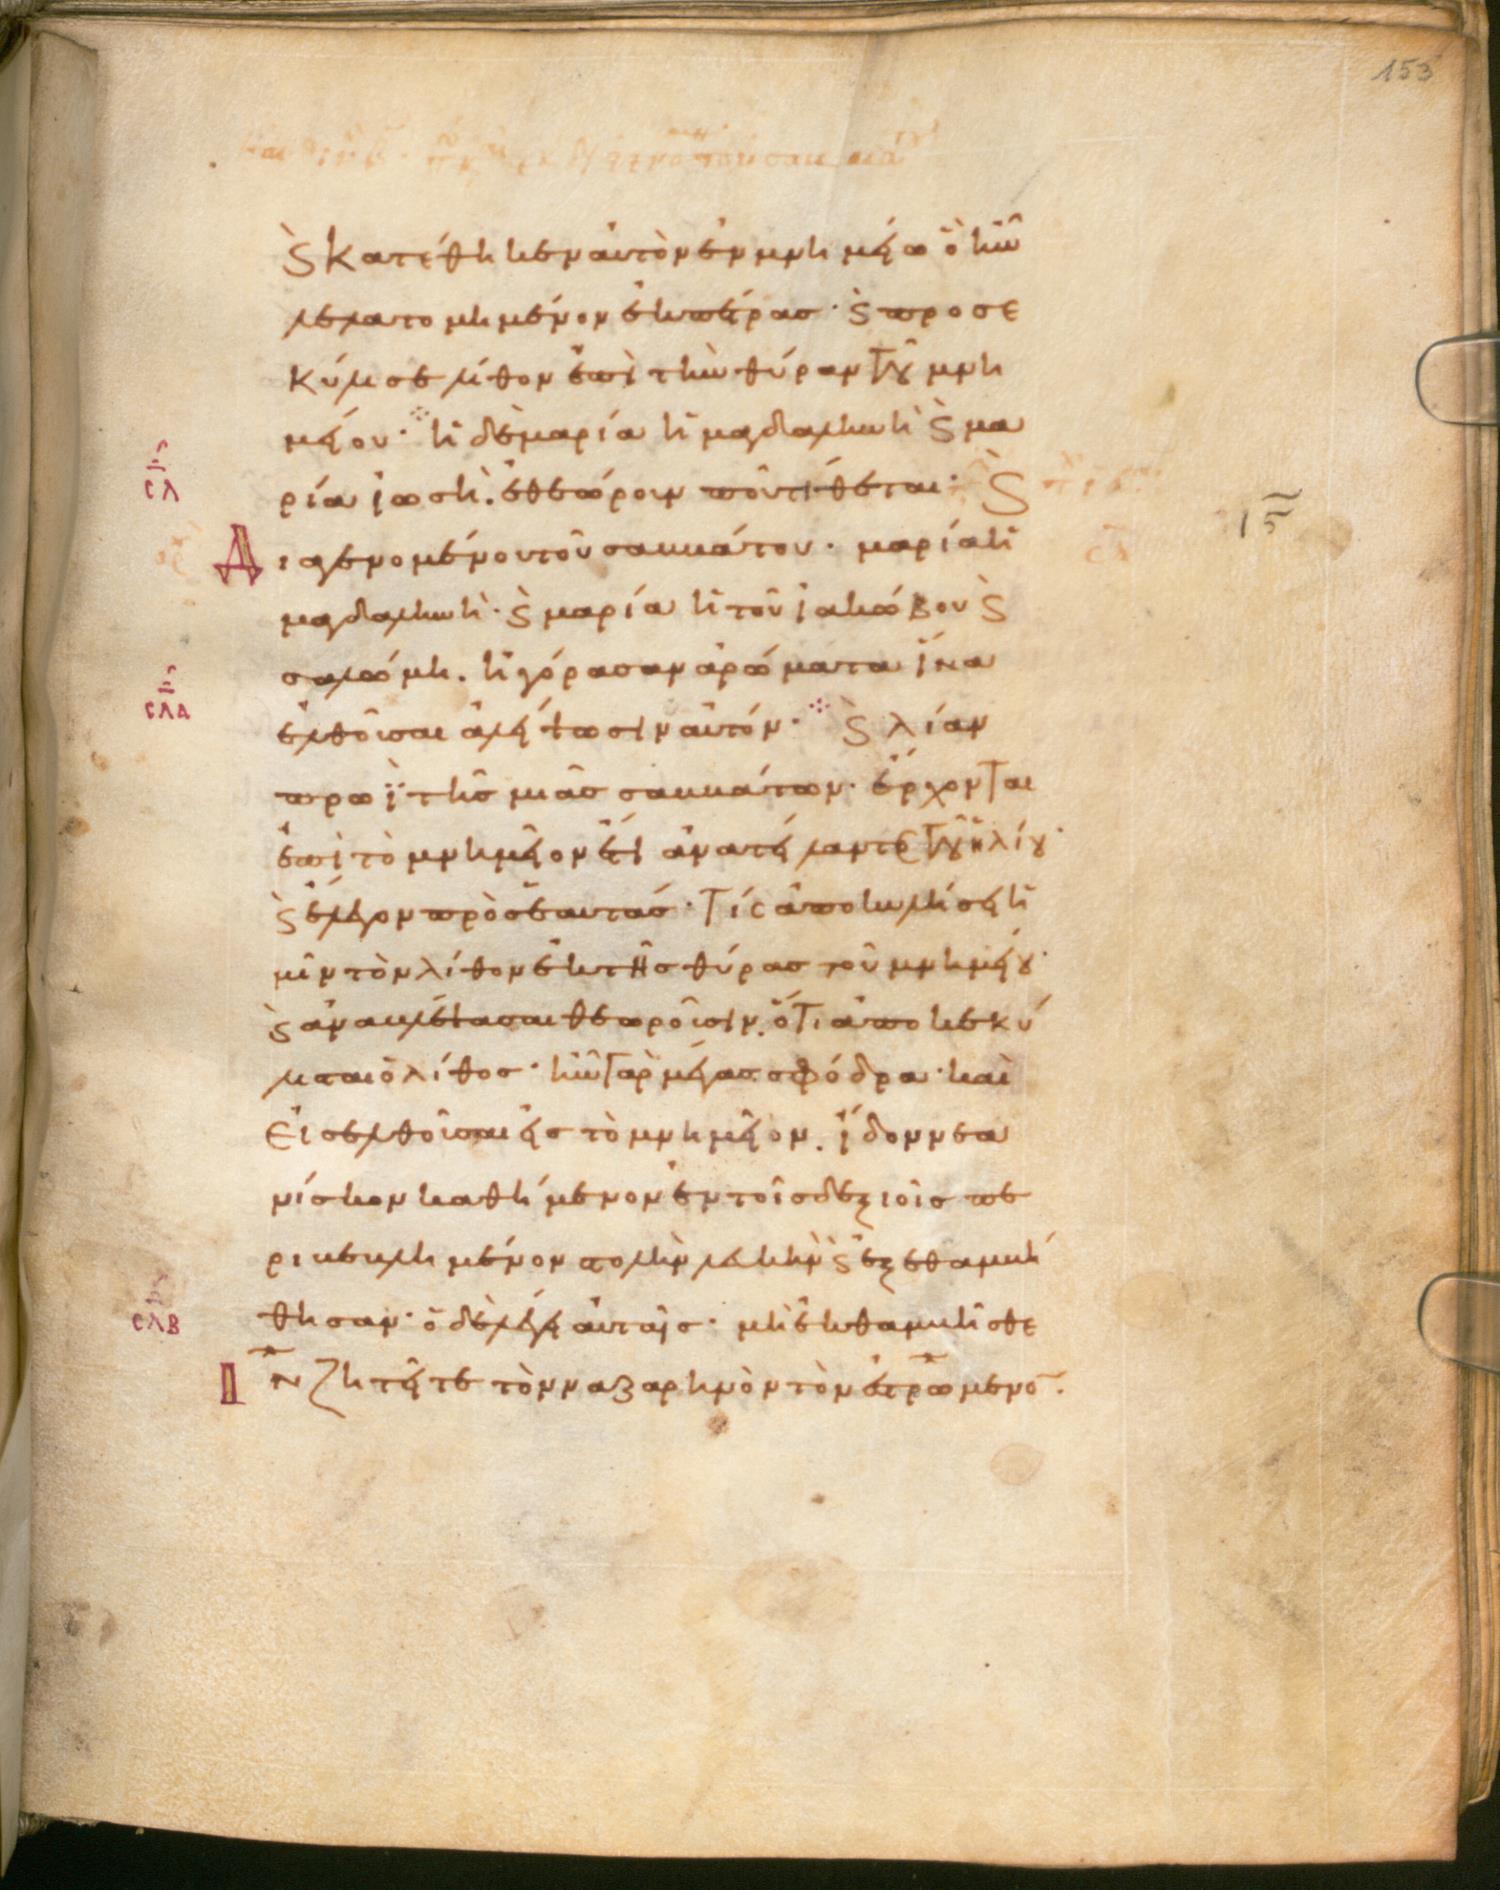 153
ϗ κατέθηκεν αὐτὸν ἐν μνημείω ὃ ἦν
λελατομημένον ἐκ πέτρας· ϗ προσε
κύλισε λίθον ἐπὶ τὴν θύραν τοῦ μνη
μείου· ἡ δὲ μαρία ἡ μαγδαληνὴ ϗ μα
ρία ἰωσῆ. ἐθεώρουν ποῦ τίθεται· ϗ
σλ
Διαγενομένου τοῦ σαββάτου· μαρία ἡ
μαγδαληνὴ· ϗ μαρία ἡ τοῦ ἰακώβου ϗ
σαλώμη. ἠγόρασαν ἀρώματα ἵνα
σλα
ἐλθοῦσαι ἀλείψωσιν αὐτόν· ϗ λίαν
πρωῒ τῆς μιᾶς σαββάτων· ἔρχονται
ἐπὶ τὸ μνημεῖον ἔτι ἀνατείλαντος τοῦ ἡλίου·
ϗ ἔλεγον πρὸς ἑαυτάς· τίς ἀποκυλίσει ἡ
μῖν τὸν λίθον ἐκ τῆς θύρας τοῦ μνημείου·
ϗ ἀναβλέψασαι θεωροῦσιν. ὅτι ἀποκεκύ
λισται ὁ λίθος· ἦν γὰρ μέγας σφόδρα· καὶ
εἰσελθοῦσαι εἰς τὸ μνημεῖον. ἴδον νεα
νίσκον καθήμενον ἐν τοῖς δεξιοῖς πε
ριβεβλημένον στολὴν λευκὴν ϗ ἐξεθαμβή
θησαν· ὁ δὲ λέγει αὐταῖς· μὴ ἐκθαμβεῖσθε
σλβ
ιν ζητεῖτε τὸν ναζαρηνὸν τὸν ἐστρωμενο̅.